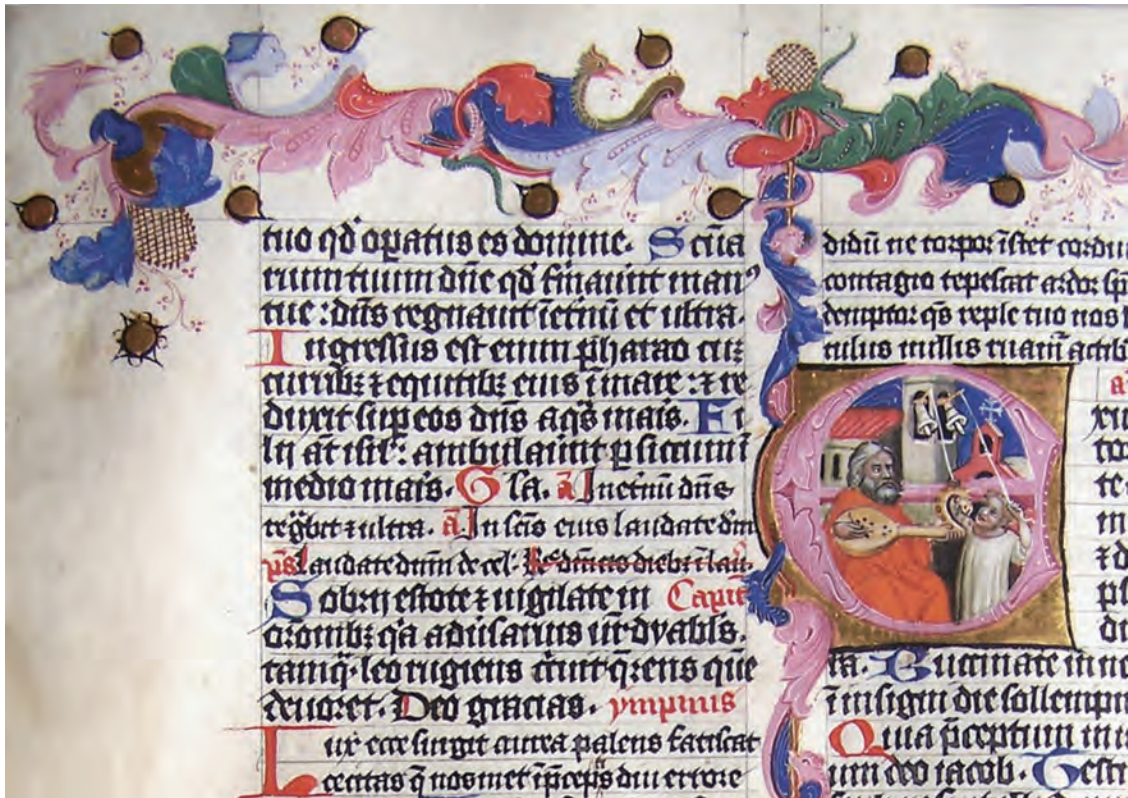 tuo qd̕ op̄atus es domine. Sc̄ua
rium tuum dn̄e qd̕ firmauīt man⁹
tue : dn̄s regnauit iet̄nū et ultra.
Ingressus est enim pharao cū
curribꝫ ⁊ equitibꝫ eius ī mare : ⁊ re
duxit sup̄ eos dn̄s aq̄s mar̄is. Fi
lij at̄ isr̄l : ambulauīt p siccum ī
medio maris. Gl̄a. ā In et̄nū dn̄s
regb̄it ⁊ ultra. ā In sc̄is eius laudate dm̄
p̄s Laudate dn̄m de cel. dn̄icis diebꝫ ī lau
Sobrij estote ⁊ uigilate in Capit̄
or̄onibꝫ q̄a adūsarius ur̄ dyabl̄s.
tamq̄ leo rugiens ciruit q̄rens que
deuoret. Deo gracias. ympnis
Lux ecce surgit aurea palens fatiscat
cecitas q̄ nosmet īp̄ceps diu errore
didū ne corpor īstet cordiu
contagio tepescat ardor sp̄
demptor q̄s reple tuo nos l
culus nullis ruam̄ actib
ta. Buccinate in ne
ī insigni die sollempn
Quia p̄ceptum in i
um deo iacob. Testi